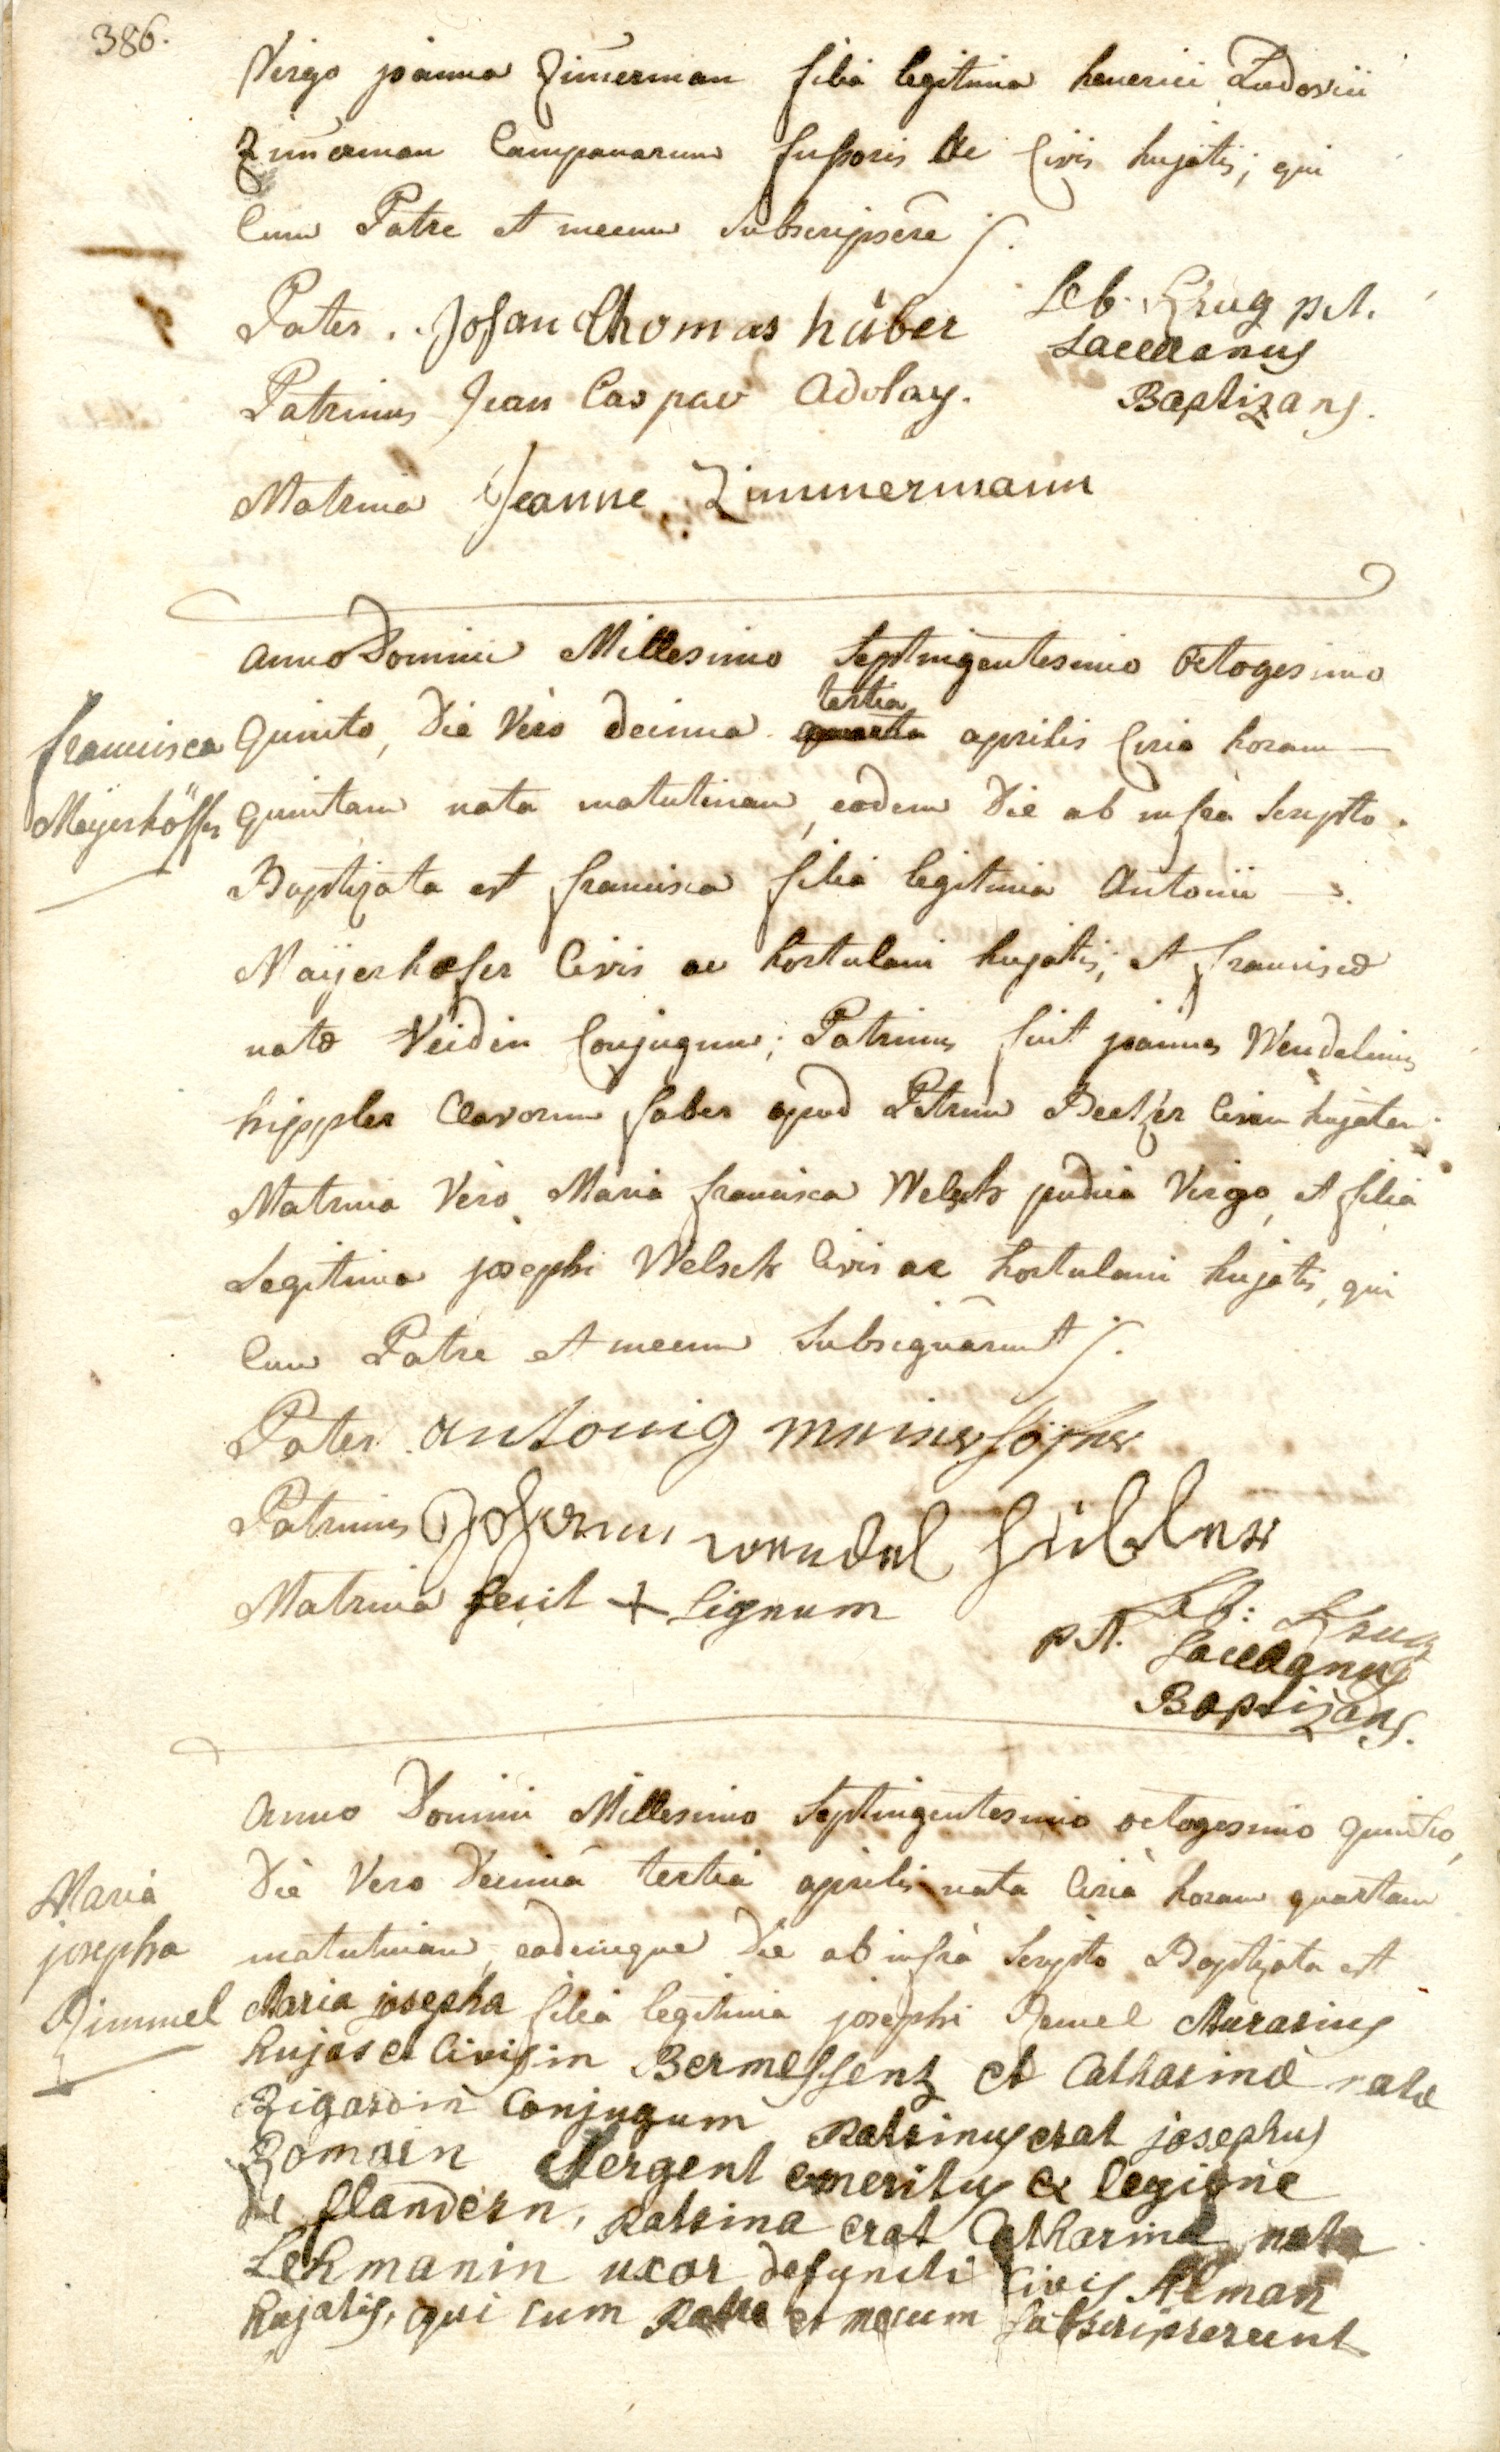 386.
Virgo joanna Zim̄erman filia legitima henerici Ludovici
Zim̄erman Campanarum fusoris ac Civis hujatis; qui
Cum Patre et mecum subscripsēre /.
Pater . Johan thomas hüber
Seb. Krug p.t.
Sacellanus
Patrinus Jean Caspar Adolay.
Baptizans.
Matrina Jeanne Zimmermann
anno Domini Millesimo Septingentesimo octogesimo
francisca
Meyerhöffer
quinto, Die Vero decima quarta tertia aprilis Circa horam
quintam nata matutinam, eodem Die ab infra Scripto
Baptizata est francisca filia legitima Antonii
Maÿerhœfer Civis ac hortulani hujatis; et franciscæ
natæ Veidin Conjugum; Patrinus fuit joannes Wendelinus
hippler Clavorum faber apud Petrum Beetzer Civem hujatem
Matrina Vero Maria francisca Welsch pudica Virgo, et filia
Legitima josephi Welsch Civis ac hortulani hujatis, qui
Cum Patre et mecum Subsignārunt /.
Pater antonig
Patrinus Johann wendel
Matrina fecit + Signum
Seb: Krug
p.t. Sacellanus
Baptizans.
Maria
josepha
Rimmel
anno Domini Millesimo Septingentesimo octogesimo quinto,
Die Vero Decima tertia aprilis nata Circa horam quartam
matutinam, eademque Die ab infra Scripto Baptizata est
Maria josepha filia legitima josephi Remel Murarius
hujas et Civis in Bermessenz et Catharinæ natæ
Rigardin Conjugum Patrinus erat josephus
Romain Sergent emeritus ex legione
de flandern, Patrina erat Catharina nata
Lehmanin uxor defuncti Civis Alman
hujatis, qui cum Patre et mecum subscripserunt